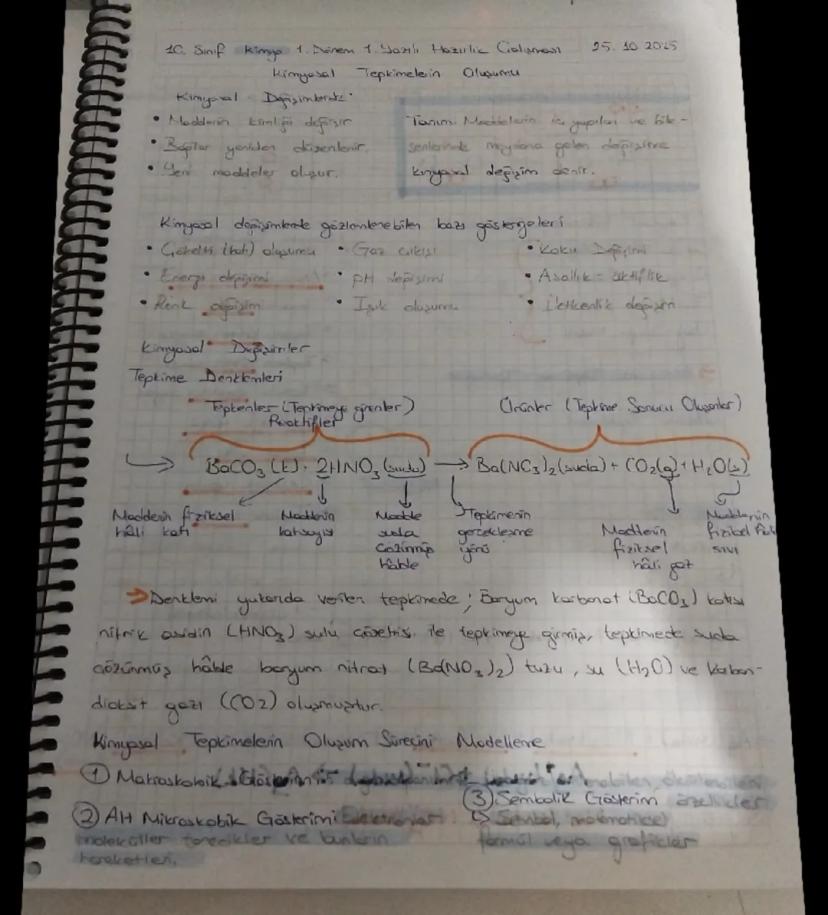 10. Sınıf Kimya 1. Dönem 1. Yazılı Hazırlık Çalışması 25.10.2025
Kimyasal Tepkimelerin Oluşumu
Kimyasal Değişimlerde:
• Maddenin kimliği değişir
• Bağlar yeniden düzenlenir.
• Yeni maddeler oluşur.
Tanım: Maddelerin iç yapıları ve bile-
senlerinde meydana gelen değişime
kimyasal değişim denir.
Kimyasal değişimlerde gözlemlenebilen bazı göstergeleri
• Çökelti (katı) oluşumu • Gaz çıkışı • Koku Değişimi
• Enerji değişimi • pH değişimi • Asallık - aktiflik
• Renk değişim • Işık oluşumu • İletkenlik değişim
Kimyasal Değişimler
Tepkime Denklemleri
Tepkenler (Tepkimeye girenler) Ürünler (Tepkime Sonucu Oluşanlar)
Reaktifler
BaCO3(k) + 2HNO3(suda) → Ba(NO3)2(suda) + CO2(g) + H2O(s)
Maddenin fiziksel hâli katı
Maddenin katsayısı
Madde suda çözünmüş hâlde
Tepkimenin gerçekleşme yönü
Maddenin fiziksel hâli gaz
Maddenin fiziksel hâli sıvı
→ Denklemi yukarıda verilen tepkimede; Baryum karbonat (BaCO3) katısı
nitrik asidin (HNO3) sulu çözeltisi ile tepkimeye girmiş, tepkimede suda
çözünmüş hâlde baryum nitrat (Ba(NO3)2) tuzu, su (H2O) ve karbon-
dioksit gazı (CO2) oluşmuştur.
Kimyasal Tepkimelerin Oluşum Sürecini Modelleme
① Makroskobik Gösterim
③ Sembolik Gösterim özellikler
② Alt Mikroskobik Gösterimi Elektronlar
↳ Sembol, matematiksel
moleküller tanecikler ve bunların
formül veya grafikler
hareketleri.